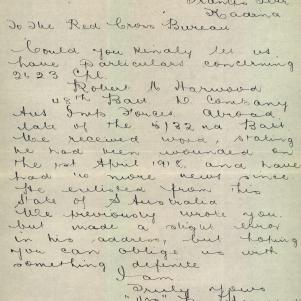 Kadina
To The Red Cross Bureau
Could you kindly let us
have particulars concerning
2623 Cpl.
Robert H Harwood
48th Batt D Company
Aus Inf Forces Abroad
late of the 5/32nd Batt
We received word, stating
he had been wounded on
the 1st April 1918, and have
had no more news since
He enlisted from his
State of S Australia
We previously wrote you
but made a slight error
in his address, but hoping
you can oblige us with
something definite
I am
Truly Yours